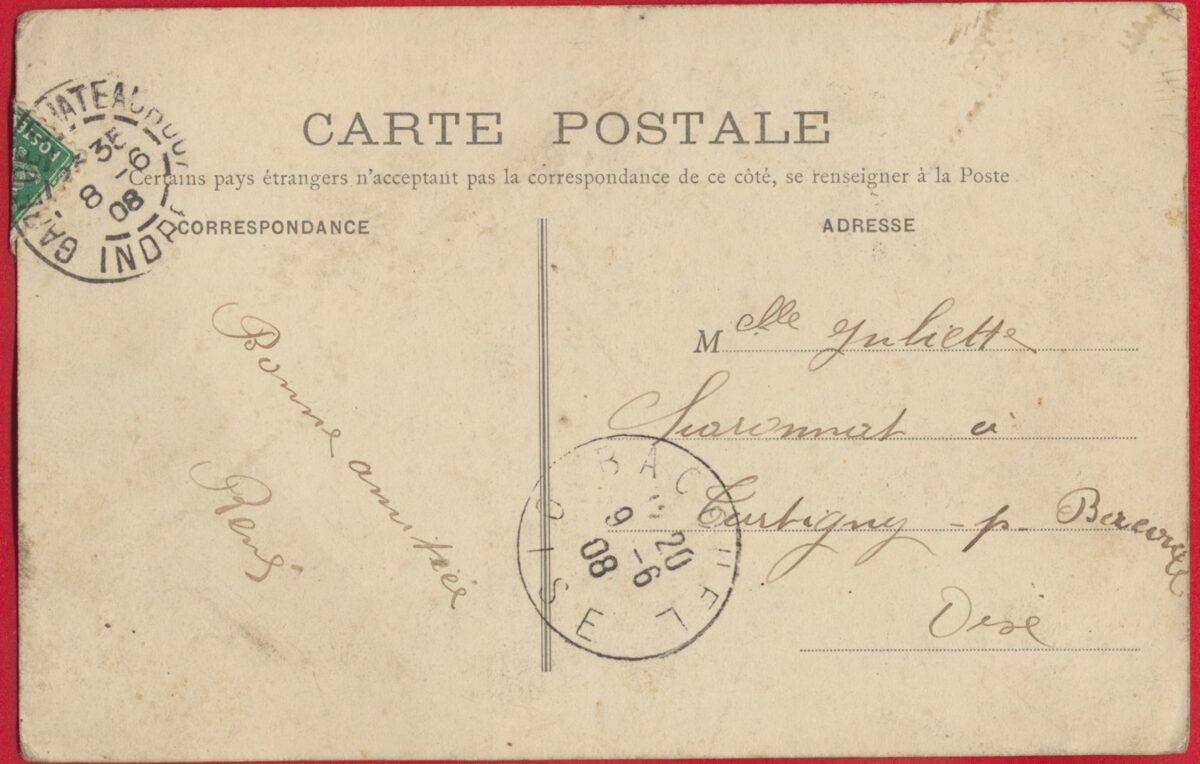 CARTE POSTALE
Certains pays étrangers n'acceptant pas la correspondance de ce côté, se renseigner à la Poste
CORRESPONDANCE
ADRESSE
Bonne amitiée
René
Melle Juliette
à
Turtigny - p.
Oise
GARE DE CHATEAUROUX
8 - 6
08
INDRE
BAC UEL
20
9 - 6
08
OISE